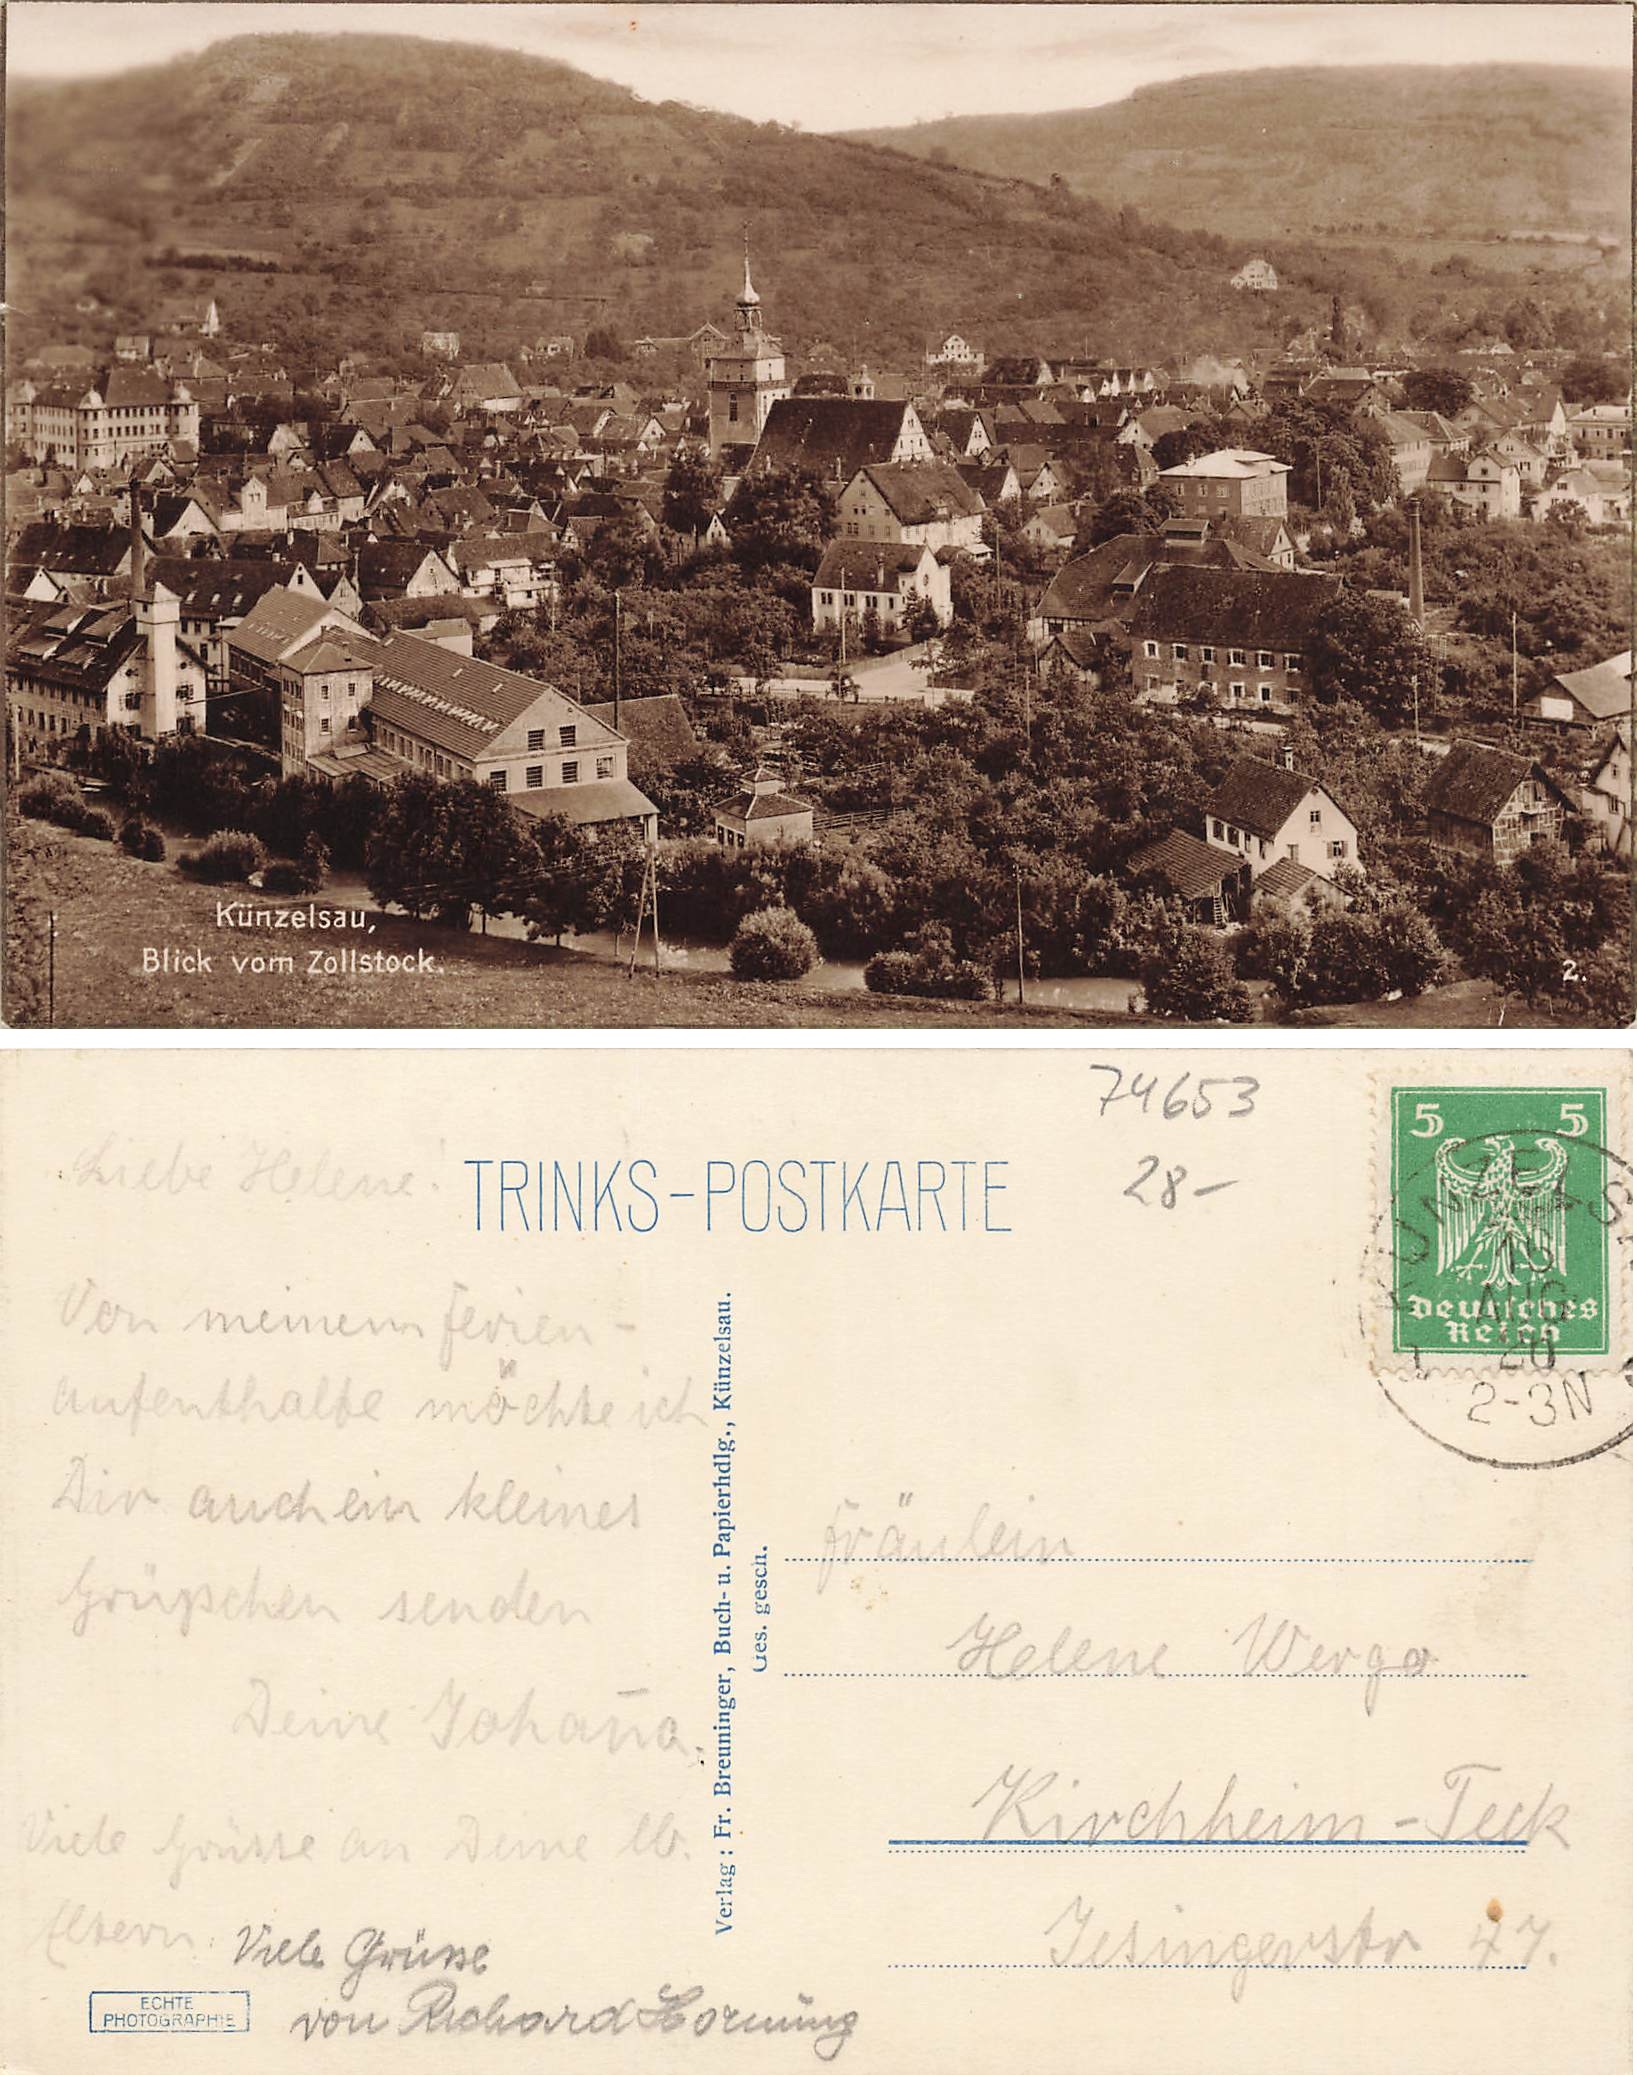 Künzelsau,
Blick vom Zollstock.
2.
74653
28-
TRINKS-POSTKARTE
5 5
Deutsches
Reich
KÜNZELS
AUG
2-3N
Liebe Helene!
Von meinem Ferien-
aufenthalte möchte ich
Dir auch ein kleines
Grüßchen senden
Deine Johan̄a.
Viele Grüsse an Deine lb.
Eltern.
Viele Grüsse
von Richard Hornung
Verlag: Fr. Breuninger, Buch- u. Papierhdlg., Künzelsau.
Ges. gesch.
Fräulein
Helene Wergo
Kirchheim-Teck
Jesingerstr 47.
ECHTE
PHOTOGRAPHIE